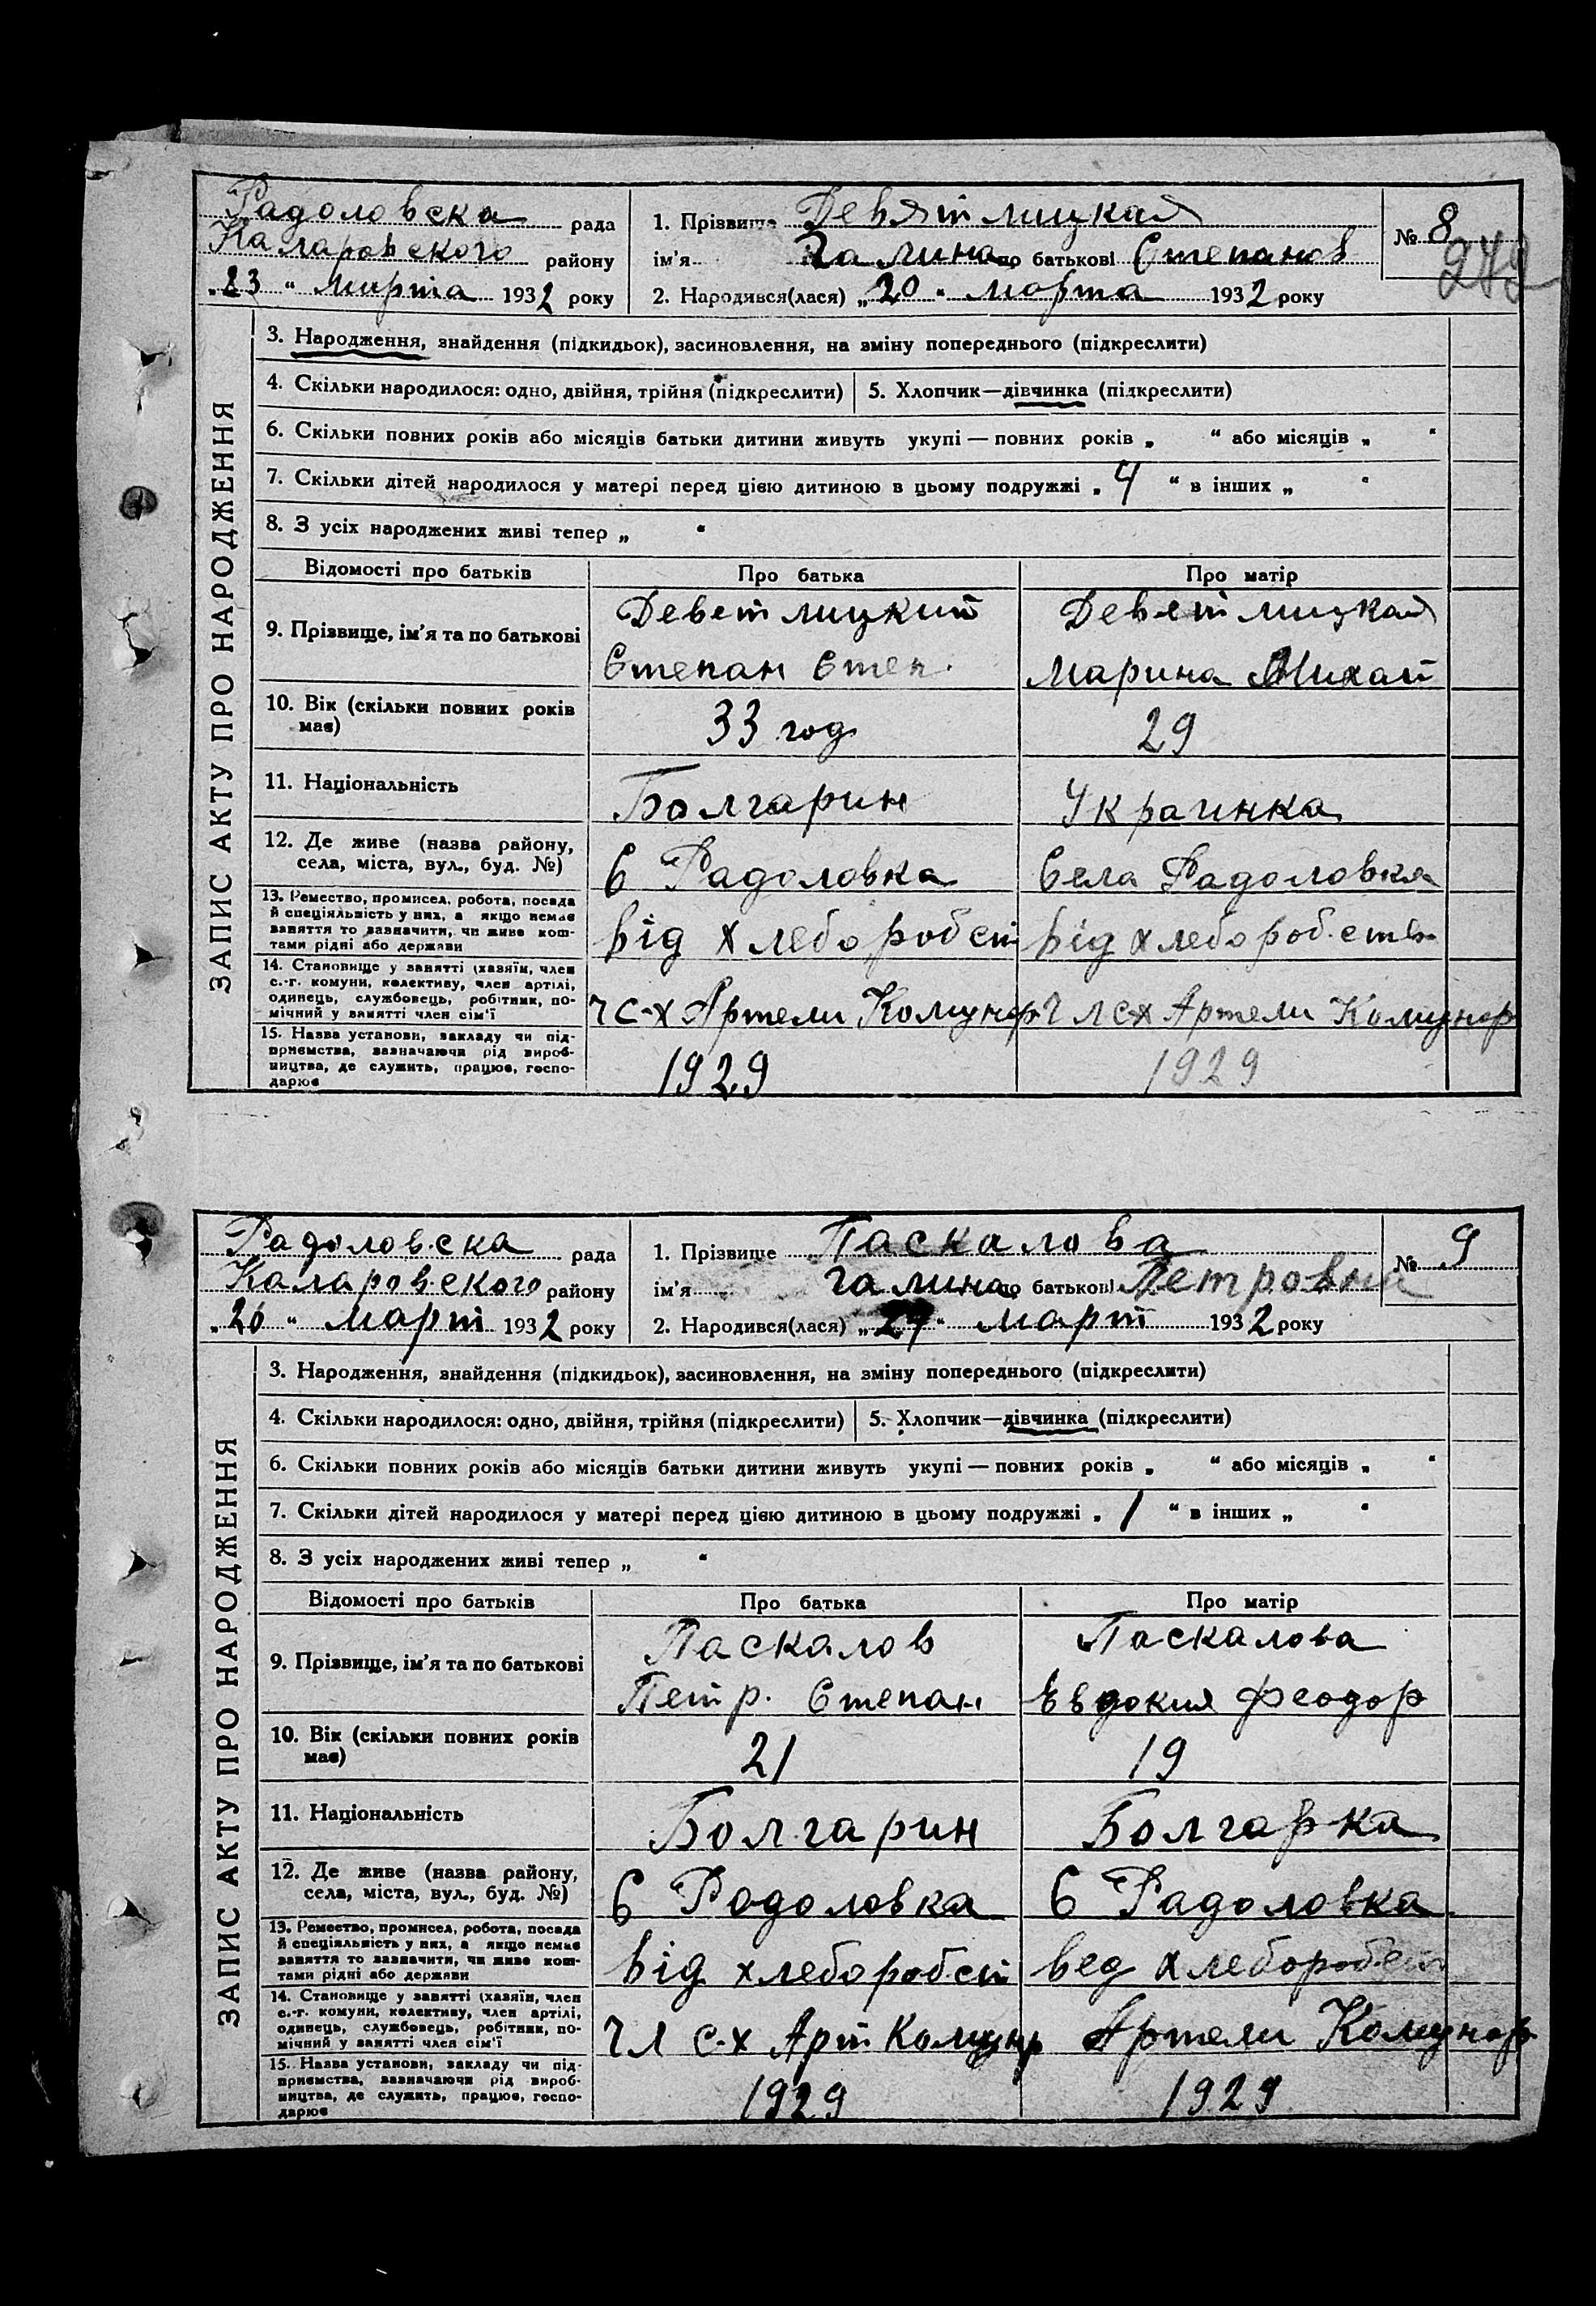 Радоловска рада
Каларовского району
„23“ Марта 1932 року
1. Прізвище Девятлицкая
ім’я Галина по батькові Степанов
2. Народився(лася) „20“ Марта 1932 року
№ 8
ЗАПИС АКТУ ПРО НАРОДЖЕННЯ
3. Народження, знайдення (підкидьок), засиновлення, на зміну попереднього (підкреслити)
4. Скільки народилося: одно, двійня, трійня (підкреслити)
5. Хлопчик—дівчинка (підкреслити)
6. Скільки повних років або місяців батьки дитини живуть укупі — повних років „ “ або місяців „ “
7. Скільки дітей народилося у матері перед цією дитиною в цьому подружжі „4“ в інших „ “
8. З усіх народжених живі тепер „ “
Відомості про батьків
Про батька
Про матір
9. Прізвище, ім’я та по батькові
Деветлицкий
Степан Степ.
Деветлицкая
Марина Михай
10. Вік (скільки повних років має)
33 год
29
11. Національність
Болгарин
Украинка
12. Де живе (назва району, села, міста, вул., буд. №)
С Радоловка
Села Радоловка
13. Ремество, промисел, робота, посада й спеціяльність у них, а якщо немає заняття то зазначити, чи живе коштами рідні або держави
від хлеборобст
від хлебороб.ства
14. Становище у занятті (хазяїн, член с.-г. комуни, колективу, член артілі, одинець, службовець, робітник, помічний у занятті член сім’ї
ч с-х Артели Комунар
Чл с-х Артели Комунар
15. Назва установи, закладу чи підприємства, зазначаючи рід виробництва, де служить, працює, господарює
1929
1929
Радоловска рада
Каларовского району
„26“ март 1932 року
1. Прізвище Паскалова
ім’я Галина по батькові Петровна
2. Народився(лася) „24“ март 1932 року
№ 9
ЗАПИС АКТУ ПРО НАРОДЖЕННЯ
3. Народження, знайдення (підкидьок), засиновлення, на зміну попереднього (підкреслити)
4. Скільки народилося: одно, двійня, трійня (підкреслити)
5. Хлопчик—дівчинка (підкреслити)
6. Скільки повних років або місяців батьки дитини живуть укупі — повних років „ “ або місяців „ “
7. Скільки дітей народилося у матері перед цією дитиною в цьому подружжі „1“ в інших „ “
8. З усіх народжених живі тепер „ “
Відомості про батьків
Про батька
Про матір
9. Прізвище, ім’я та по батькові
Паскалов
Петр. Степан
Паскалова
Евдокия Феодор
10. Вік (скільки повних років має)
21
19
11. Національність
Болгарин
Болгарка
12. Де живе (назва району, села, міста, вул., буд. №)
С Родоловка
С Радоловка
13. Ремество, промисел, робота, посада й спеціяльність у них, а якщо немає заняття то зазначити, чи живе коштами рідні або держави
від хлеборобст
вед хлеборобст
14. Становище у занятті (хазяїн, член с.-г. комуни, колективу, член артілі, одинець, службовець, робітник, помічний у занятті член сім’ї
Чл с-х Арт Комунр
Артели Комунар
15. Назва установи, закладу чи підприємства, зазначаючи рід виробництва, де служить, працює, господарює
1929
1929